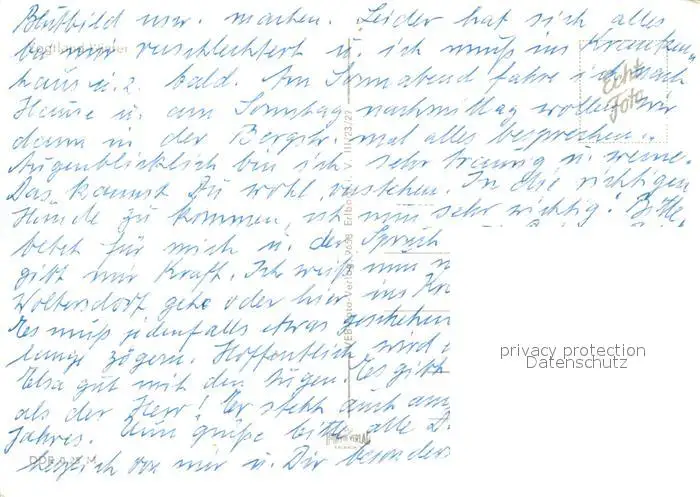 Blutbild usw. machen. Leider hat sich alles
bei mir verschlechtert u. ich muß ins Kranken
haus u. z. bald. Am Sonnabend fahre ich nach
Hause u. am Sonntag nachmittag wollen wir
dann in der Bergstr. mal alles besprechen.
Augenblicklich bin ich sehr traurig u. weine.
Das kannst Du wohl verstehen. In die richtigen
Hände zu kommen, ist nun sehr wichtig! Bitte
betet für mich u. der Spruch
gibt mir Kraft. Ich weiß nun
Woltersdorf gehe oder hier ins
Es muß jedenfalls etwas geschehen
lange zögern. Hoffentlich wird
Elsa gut mit den Augen. Es gibt
als der Herr! Er steht auch
Jahres. Nun grüße bitte alle
herzlich von mir u. Dir besonders
Echt
Foto
III/23/27
VEB Foto-Verlag
privacy protection
Datenschutz